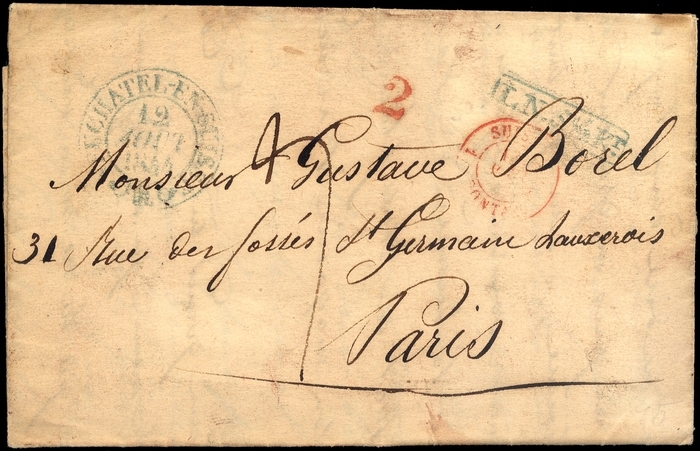 2
NEUCHATEL-EN-SUISSE
12
AOUT
1844
Monsieur Gustave Borel
31 Rue des fossés St Germain Lauxerois
Paris